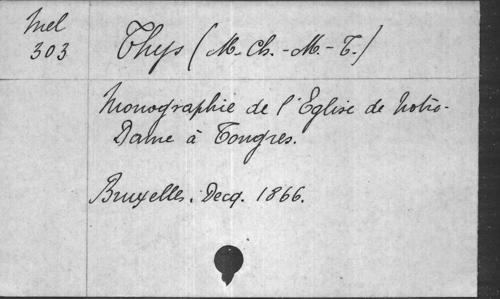 Mel
303
Thys (M.-Ch.-M.-T.)
Monographie de l'Eglise de Notre-
Dame à Tongres.
Bruxelles. Decq. 1866.